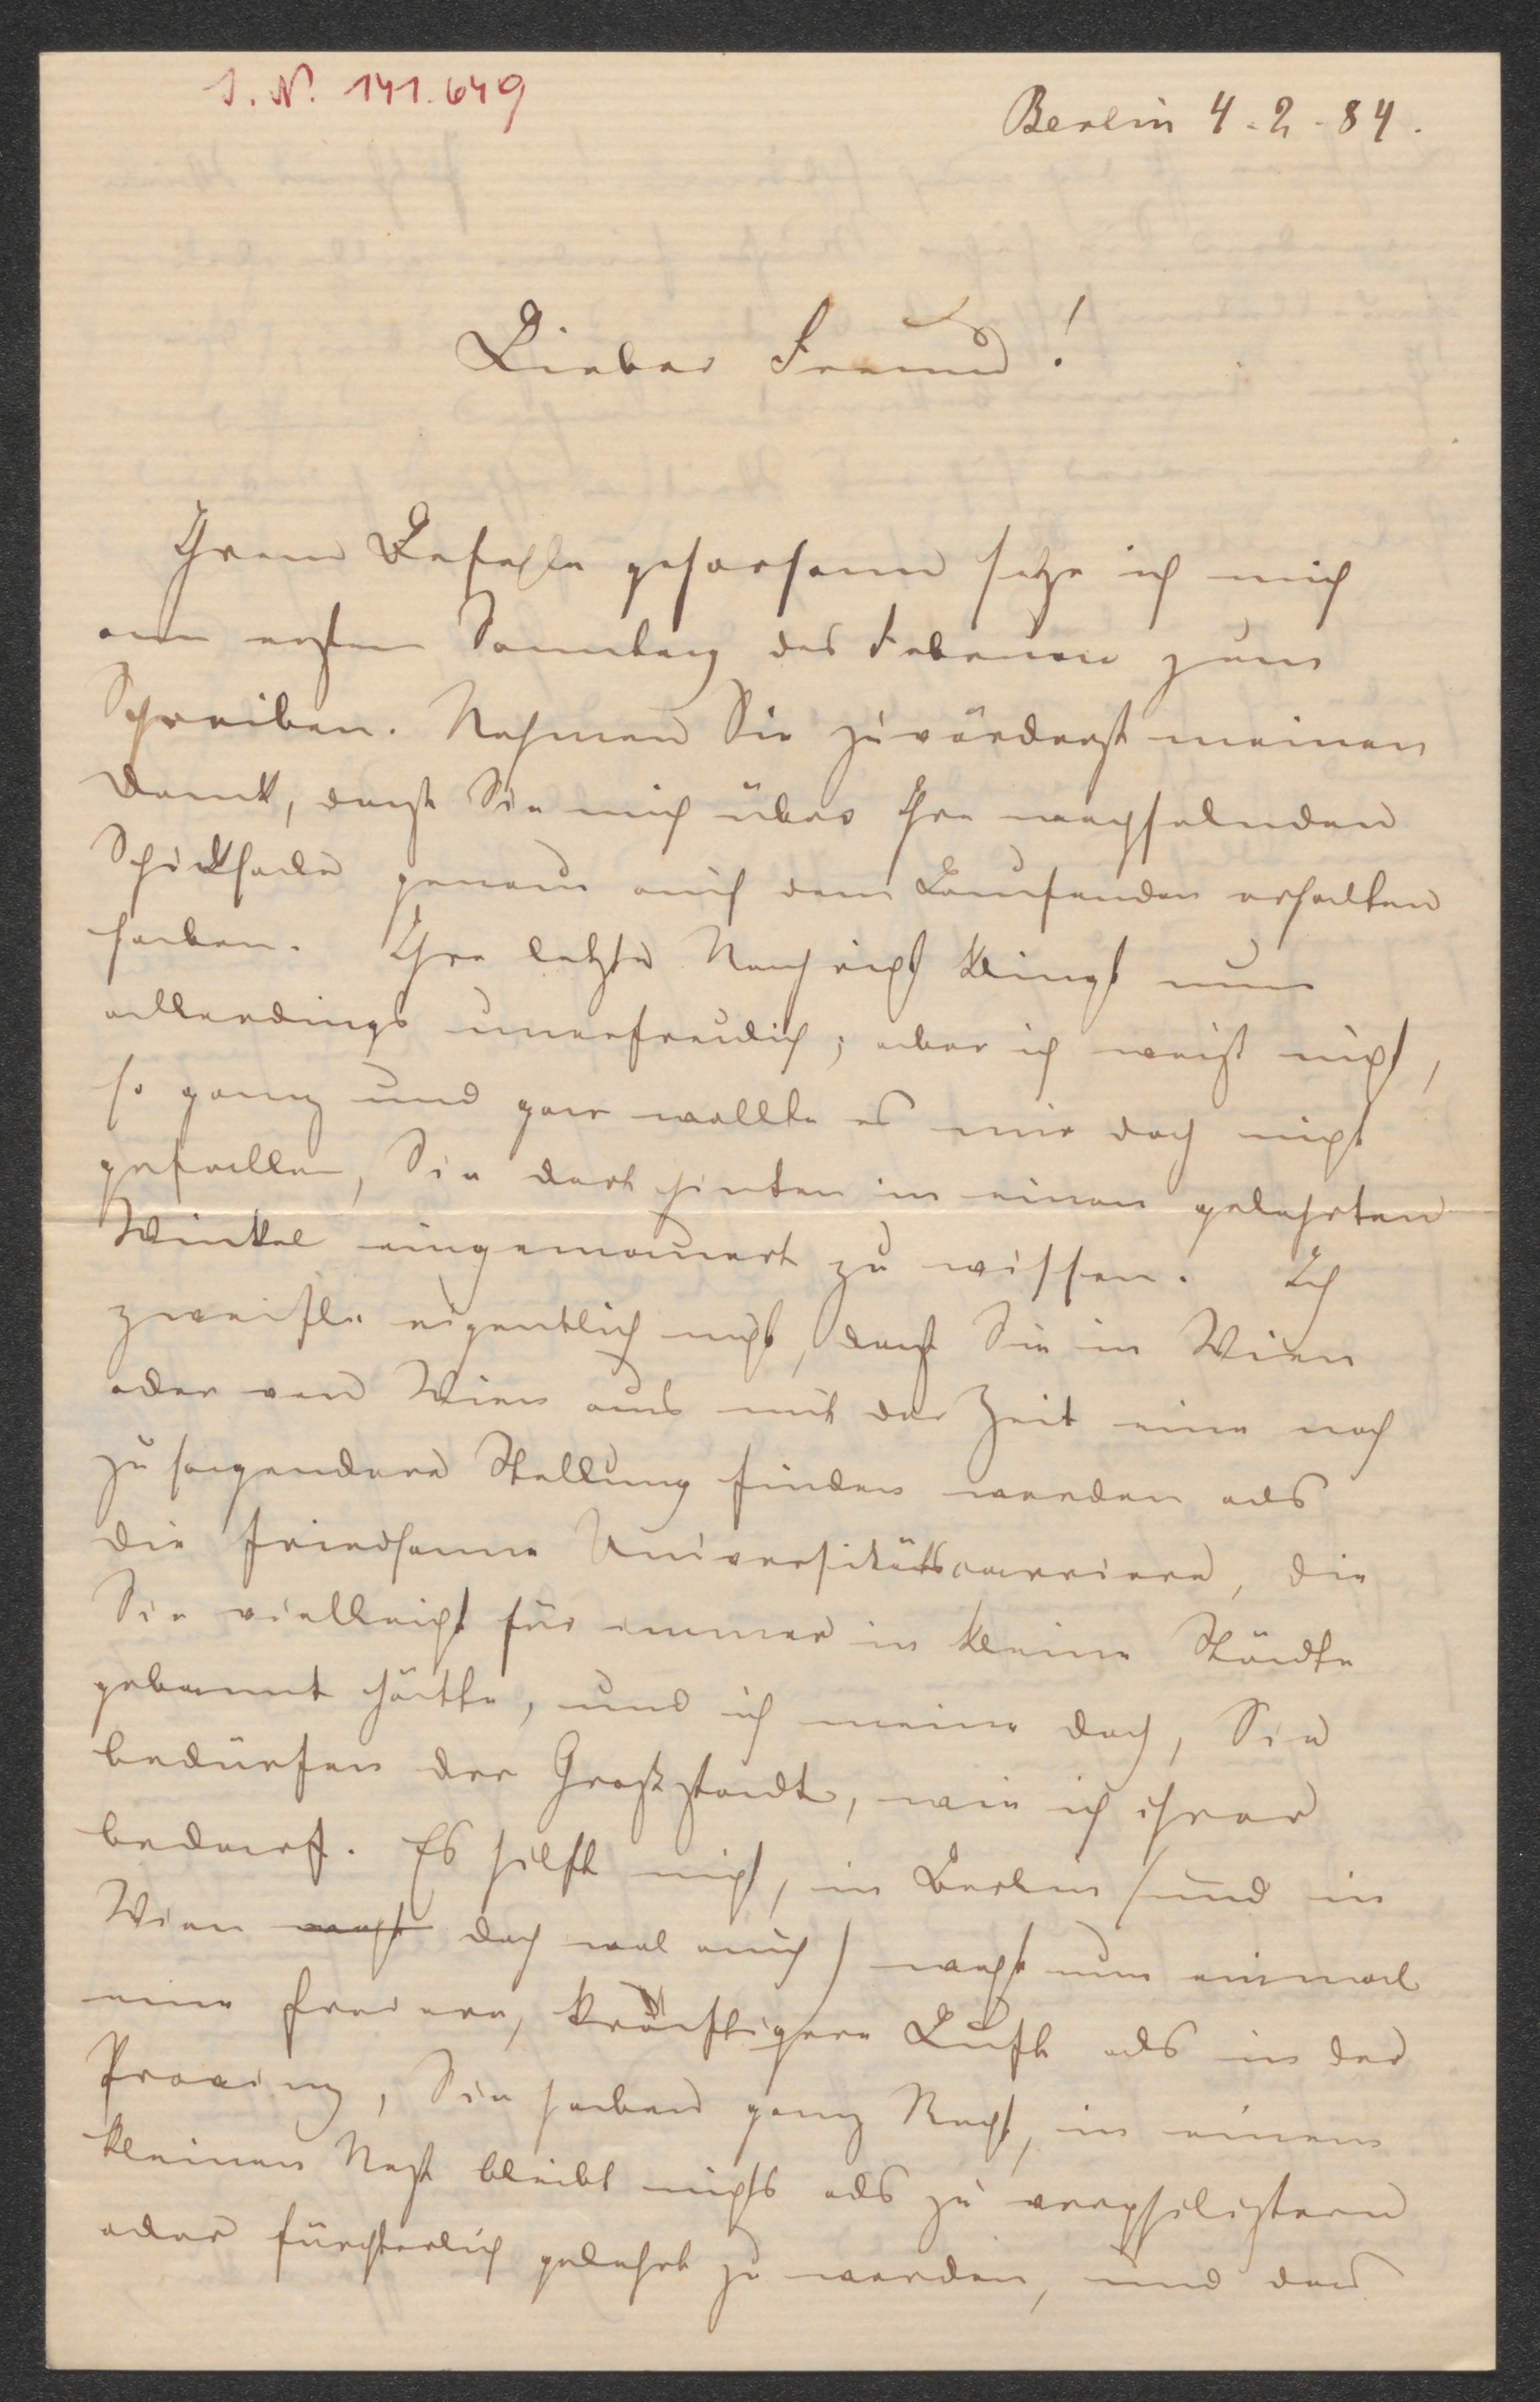 I. N. 141.649
Berlin 4.2.84.
Lieber Freund!
Ihrem Befehle gehorsam setze ich mich
am ersten Sonntag des Februar zum
Schreiben. Nehmen Sie zuvörderst meinen
Dank, daß Sie mich über Ihre wechselnden
Schicksale genau auf dem Laufenden erhalten
haben. Ihre letzte Nachricht klingt nun
allerdings unerfreulich; aber ich weiß nicht,
so ganz und gar wollte es mir doch nicht
gefallen, Sie dort hinten in einen gelehrten
Winkel eingemauert zu wissen. Ich
zweifle eigentlich nicht, daß Sie in Wien
oder von Wien aus mit der Zeit eine noch
zusagendere Stellung finden werden als
die friedsame Universitätscarriere, die
Sie vielleicht für immer in kleine Städte
gebannt hätte, und ich meine doch, Sie
bedürfen der Großstadt, wie ich ihrer
bedarf. Es hilft nicht, in Berlin (und in
Wien weht doch wol auch) weht nun einmal
eine freiere, kräftigere Luft als in der
Provinz, Sie haben ganz Recht, in einem
kleinen Nest bleibt nichts als zu verphilistern
oder fürchterlich gelehrt zu werden, und das